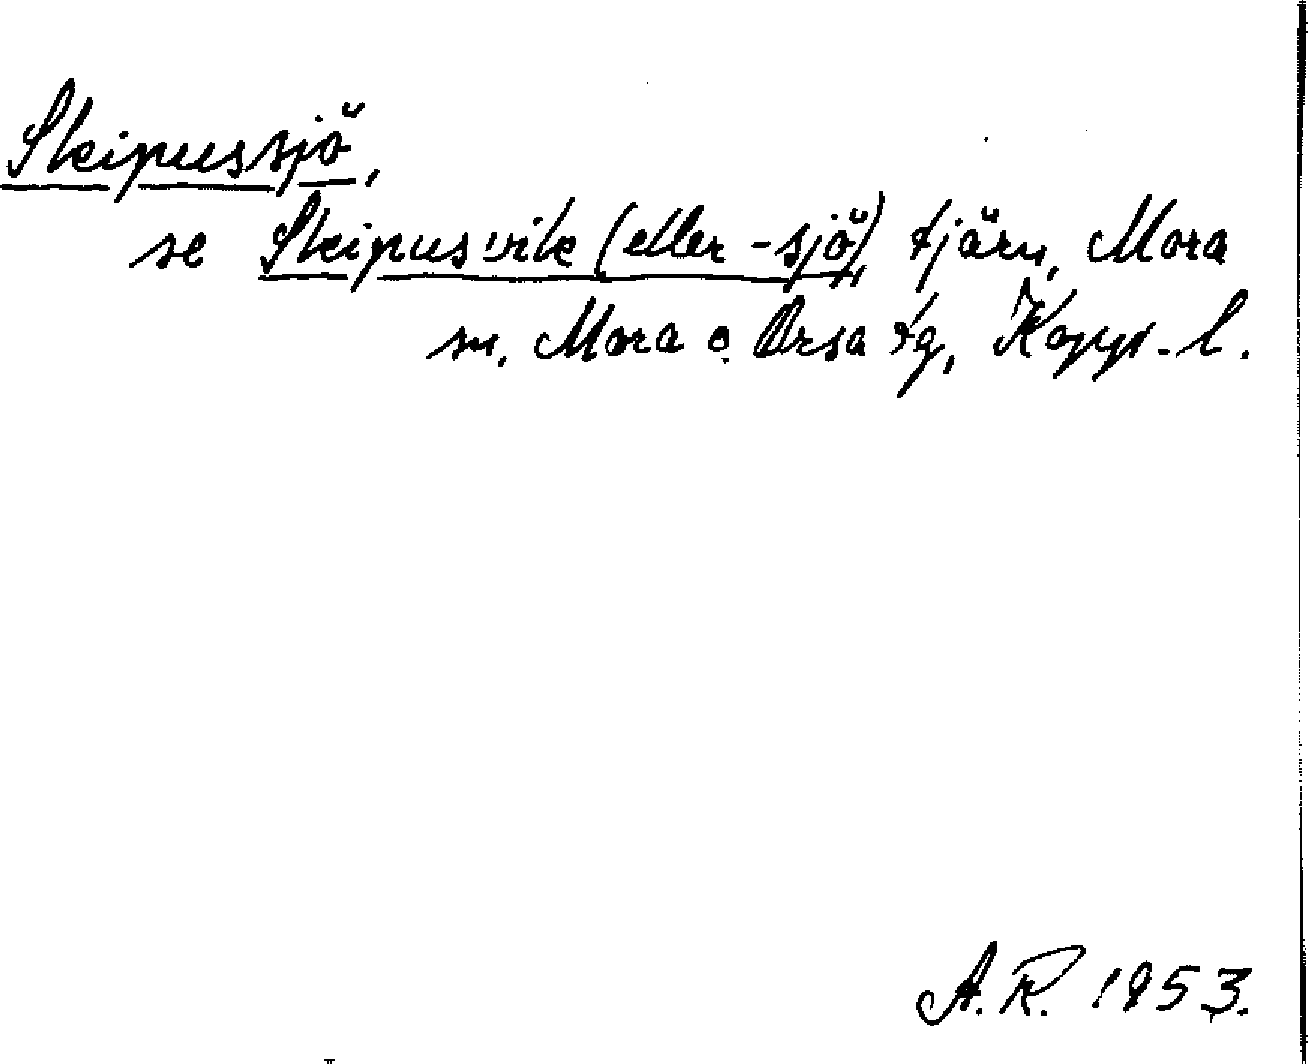 Skipussjö,
se Skipusvik (eller -sjö), tjärn, Mora
sn, Mora o. Orsa tg, Kopp. l.
A.R. 1953.